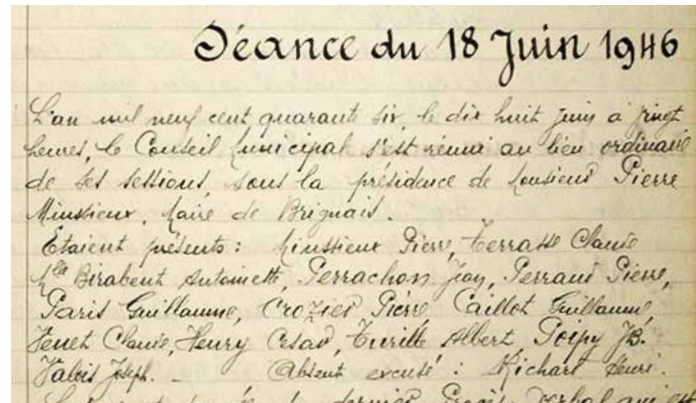 Séance du 18 Juin 1946
L'an mil neuf cent quarante six, le dix huit juin à vingt
heures, le Conseil Municipal s'est réuni au lieu ordinaire
de ses sessions, sous la présidence de Monsieur Pierre
Minssieux, Maire de Brignais.
Etaient présents : Minssieux Pierre, Terrasse Claude
Mlle Birabent Antoinette, Perrachon Jean, Perraud Pierre,
Paris Guillaume, Crozier Pierre Caillot Guillaume,
Claude, Henry César, Albert, Poipy JB.
Valois Joseph. - Absent excusé : Richard Henri.
dernier Procès-Verbal qui est